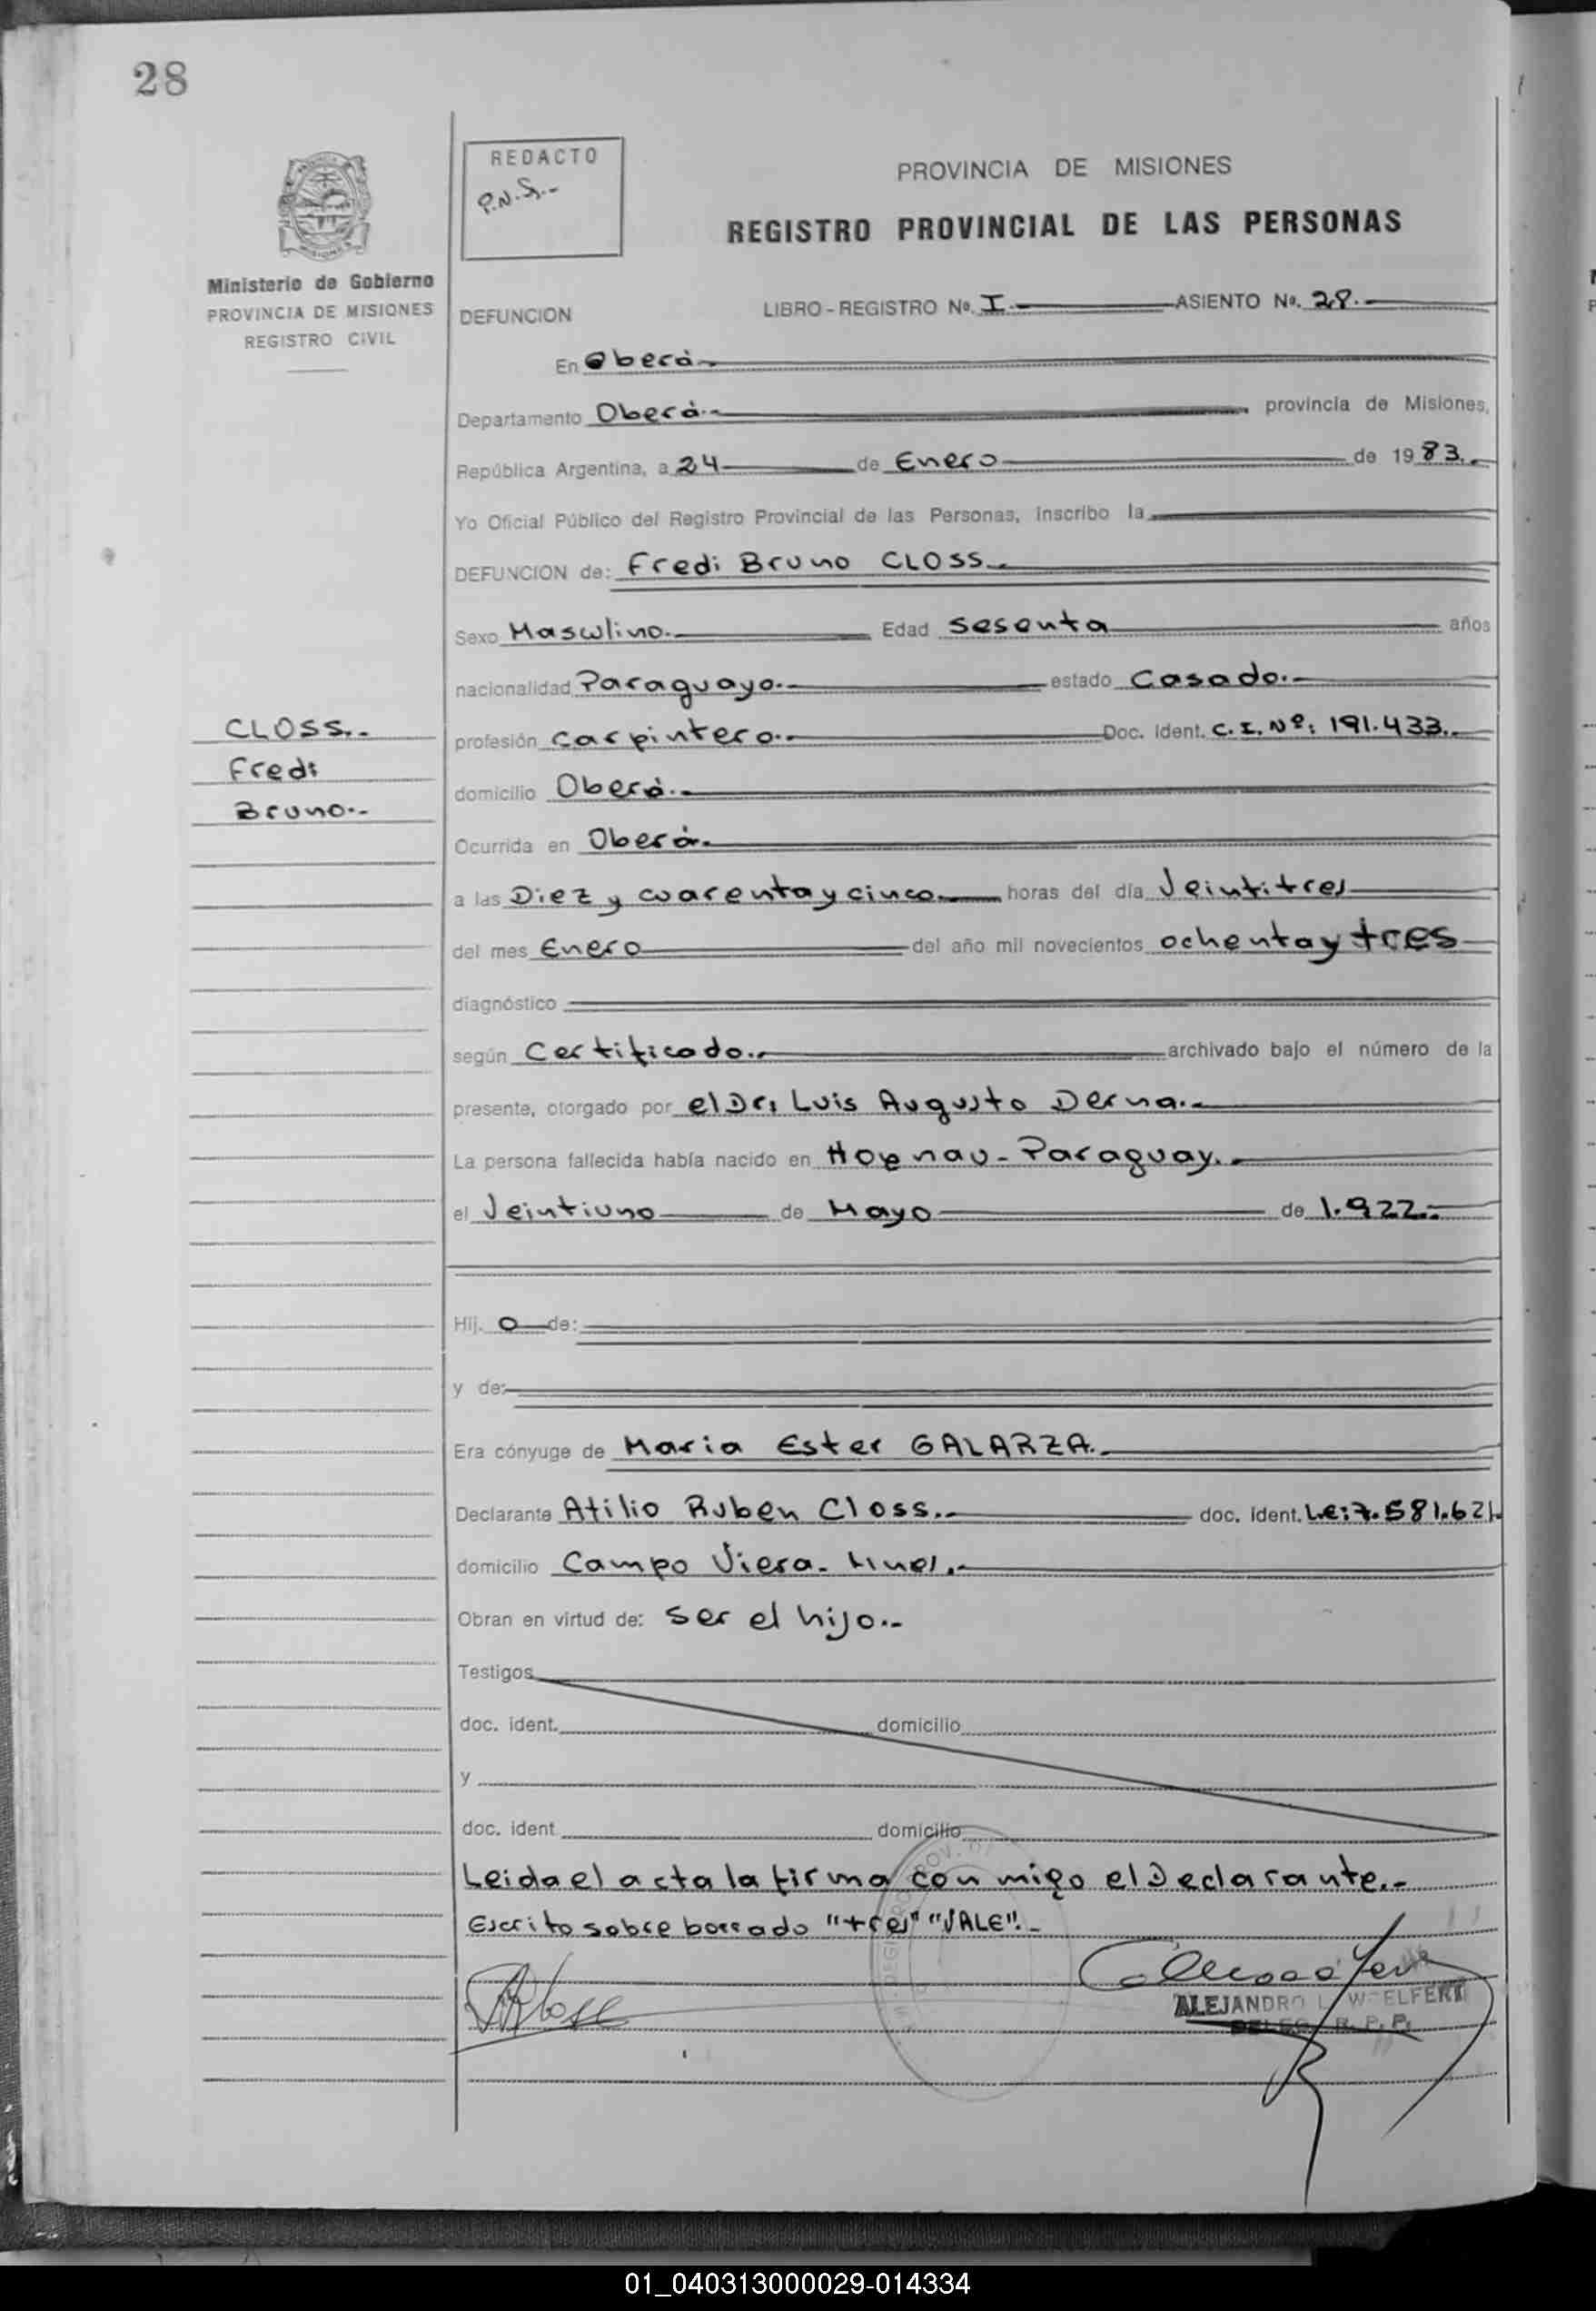 28
REDACTO
P.N.S.-
PROVINCIA DE MISIONES
REGISTRO PROVINCIAL DE LAS PERSONAS
Ministerio de Gobierno
PROVINCIA DE MISIONES
REGISTRO CIVIL
DEFUNCION LIBRO-REGISTRO No. I.- ASIENTO No. 28.-
En Oberá.-
Departamento Oberá.- provincia de Misiones,
República Argentina, a 24 de Enero de 1983.-
Yo Oficial Público del Registro Provincial de las Personas, inscribo la
DEFUNCION de: Fredi Bruno CLOSS.-
Sexo Masculino.- Edad sesenta años
nacionalidad Paraguayo.- estado Casado.-
CLOSS.-
Fredi
Bruno.-
profesión carpintero.- Doc. Ident. C.I. Nº: 191.433.-
domicilio Oberá.-
Ocurrida en Oberá.-
a las Diez y cuarenta y cinco.- horas del día Veintitres
del mes Enero del año mil novecientos ochenta y tres
diagnóstico
según Certificado.- archivado bajo el número de la
presente, otorgado por el Dr: Luis Augusto Derna.-
La persona fallecida había nacido en Hoenau-Paraguay.-
el Veintiuno de Mayo de 1.922.-
Hij. o de:
y de:
Era cónyuge de Maria Ester GALARZA.-
Declarante Atilio Ruben Closs.- doc. Ident. L.E: 7.581.621.
domicilio Campo Viera-Mnes.-
Obran en virtud de: ser el hijo.-
Testigos
doc. ident. domicilio
y
doc. ident domicilio
Leida el acta la firma con migo el Declarante.-
Escrito sobre borrado "tres" "VALE".-
ALEJANDRO L. WOELFERT
DELEG. R. P. P.
01_040313000029-014334